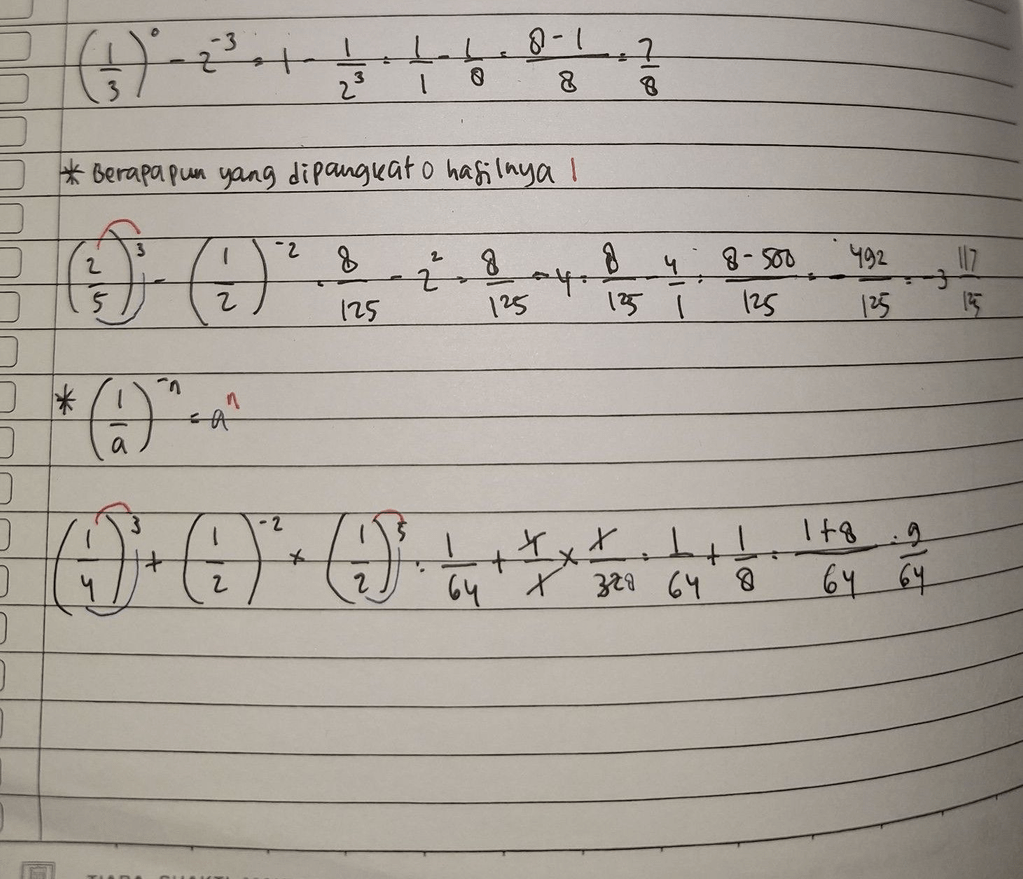 (1/3)⁰ - 2⁻³ = 1 - 1/2³ = 1/1 - 1/8 = (8-1)/8 = 7/8
* Berapapun yang dipangkat 0 hasilnya 1
(2/5)³ - (1/2)⁻² = 8/125 - 2² = 8/125 - 4 = 8/125 - 4/1 = (8-500)/125 = -492/125 = -3 117/125
* (1/a)⁻ⁿ = aⁿ
(1/4)³ + (1/2)⁻² × (1/2)⁵ = 1/64 + 4/1 × 1/328 = 1/64 + 1/8 = (1+8)/64 = 9/64